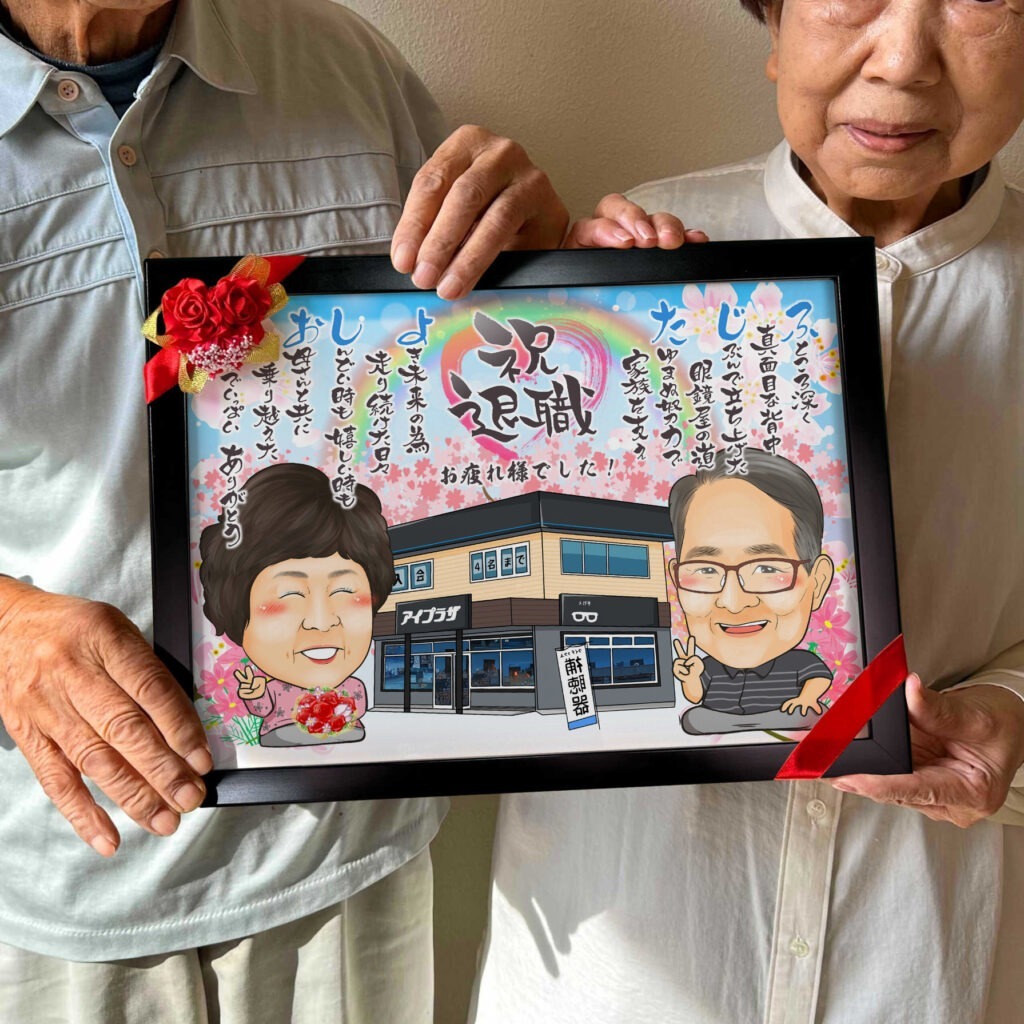 ふところ深く
真面目な背中
じぶんで立ち上げた
眼鏡屋の道
たゆまぬ努力で
家族を支え
祝
退職
お疲れ様でした！
よき未来の為
走り続けた日々
しんどい時も 嬉しい時も
お母さんと共に
乗り越えた
でいっぱい ありがとう
4名まで
アイプラザ
メガネ
補聴器